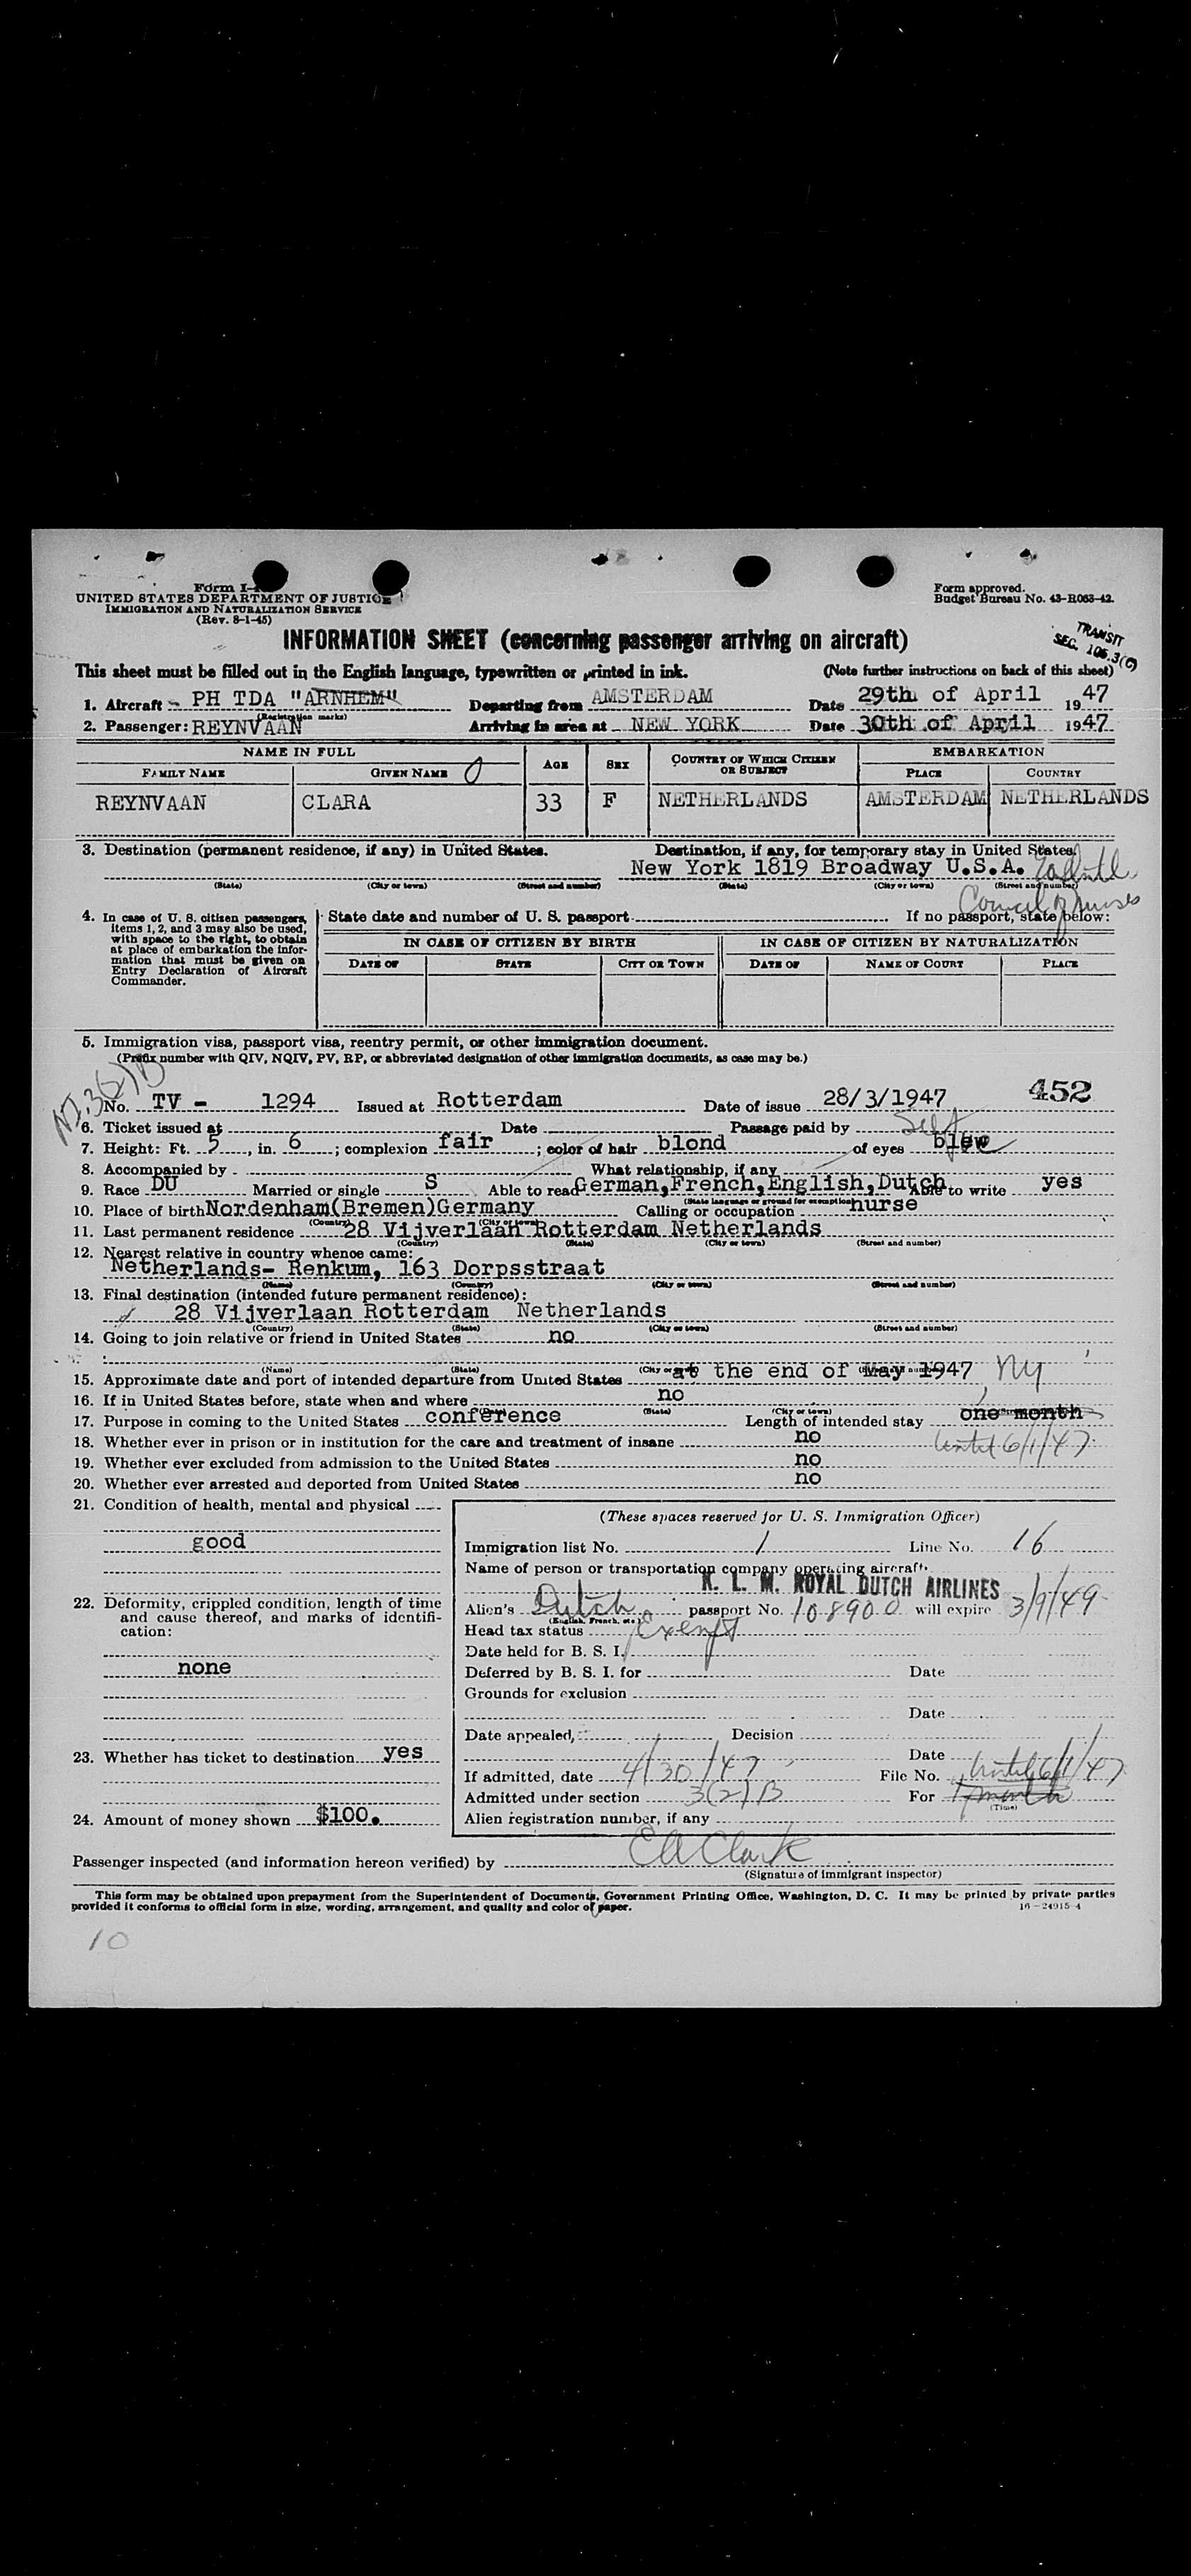 Form I-
UNITED STATES DEPARTMENT OF JUSTICE
IMMIGRATION AND NATURALIZATION SERVICE
(Rev. 8-1-45)
Form approved.
Budget Bureau No. 43-R063-42.
INFORMATION SHEET (concerning passenger arriving on aircraft)
TRANSIT
SEC. 106.3(C)
This sheet must be filled out in the English language, typewritten or printed in ink. (Note further instructions on back of this sheet)
1. Aircraft PH TDA "ARNHEM" Departing from AMSTERDAM Date 29th of April 1947
(Registration marks)
2. Passenger: REYNVAAN Arriving in area at NEW YORK Date 30th of April 1947
NAME IN FULL AGE SEX COUNTRY OF WHICH CITIZEN OR SUBJECT EMBARKATION
FAMILY NAME GIVEN NAME PLACE COUNTRY
REYNVAAN CLARA 33 F NETHERLANDS AMSTERDAM NETHERLANDS
3. Destination (permanent residence, if any) in United States. Destination, if any, for temporary stay in United States.
New York 1819 Broadway U.S.A.
(State) (City or town) (Street and number) (State) (City or town) (Street and number)
Council of Nurses
4. In case of U. S. citizen passengers, items 1, 2, and 3 may also be used, with space to the right, to obtain at place of embarkation the information that must be given on Entry Declaration of Aircraft Commander.
State date and number of U. S. passport If no passport, state below:
IN CASE OF CITIZEN BY BIRTH IN CASE OF CITIZEN BY NATURALIZATION
DATE OF STATE CITY OR TOWN DATE OF NAME OF COURT PLACE
5. Immigration visa, passport visa, reentry permit, or other immigration document.
(Prefix number with QIV, NQIV, PV, RP, or abbreviated designation of other immigration documents, as case may be.)
No. TV - 1294 Issued at Rotterdam Date of issue 28/3/1947 452
6. Ticket issued at Date Passage paid by Self
7. Height: Ft. 5, in. 6; complexion fair; color of hair blond of eyes blew
8. Accompanied by What relationship, if any
9. Race DU Married or single S Able to read German,French,English,Dutch Able to write yes
(State language or ground for exemption)
10. Place of birth Nordenham(Bremen)Germany Calling or occupation nurse
(Country) (City or town)
11. Last permanent residence 28 Vijverlaan Rotterdam Netherlands
(Country) (State) (City or town) (Street and number)
12. Nearest relative in country whence came:
Netherlands- Renkum, 163 Dorpsstraat
(Name) (Country) (City or town) (Street and number)
13. Final destination (intended future permanent residence):
28 Vijverlaan Rotterdam Netherlands
(Country) (State) (City or town) (Street and number)
14. Going to join relative or friend in United States no
(Name) (State) (City or town) (Street and number)
15. Approximate date and port of intended departure from United States at the end of May 1947 NY
16. If in United States before, state when and where no
(Date) (State) (City or town)
17. Purpose in coming to the United States conference Length of intended stay one month
18. Whether ever in prison or in institution for the care and treatment of insane no until 6/1/47
19. Whether ever excluded from admission to the United States no
20. Whether ever arrested and deported from United States no
21. Condition of health, mental and physical
good
22. Deformity, crippled condition, length of time and cause thereof, and marks of identification:
none
23. Whether has ticket to destination yes
24. Amount of money shown $100.
(These spaces reserved for U. S. Immigration Officer)
Immigration list No. 1 Line No. 16
Name of person or transportation company operating aircraft
K. L. M. ROYAL DUTCH AIRLINES
Alien's Dutch passport No. 108900 will expire 3/9/49
(English, French, etc.)
Head tax status Exempt
Date held for B. S. I.
Deferred by B. S. I. for Date
Grounds for exclusion
Date
Date appealed, Decision
Date
If admitted, date 4/30/47 File No. until 6/1/47
Admitted under section 3(2)B For 1 month
(Time)
Alien registration number, if any
Passenger inspected (and information hereon verified) by EA Clark
(Signature of immigrant inspector)
This form may be obtained upon prepayment from the Superintendent of Documents, Government Printing Office, Washington, D. C. It may be printed by private parties
provided it conforms to official form in size, wording, arrangement, and quality and color of paper.
16—24915-4
10